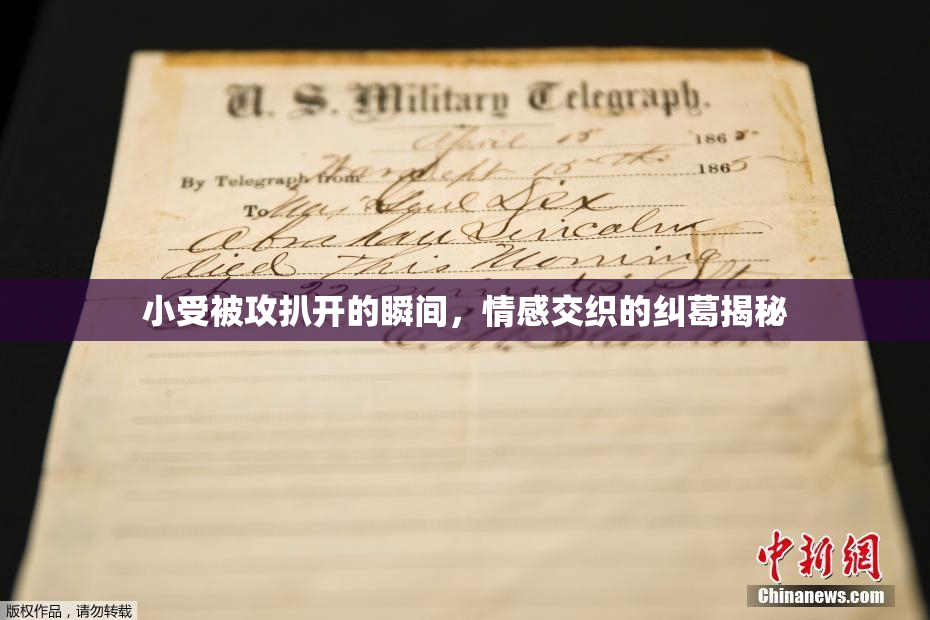 U. S. Military Telegraph.
April 15 1865
By Telegraph from War Dept 15th 1865
To Maj Genl Dix
Abraham Lincoln
died This Morning
22 minutes after
小受被攻扒开的瞬间，情感交织的纠葛揭秘
E. M. Stanton
中新网
Chinanews.com
版权作品，请勿转载